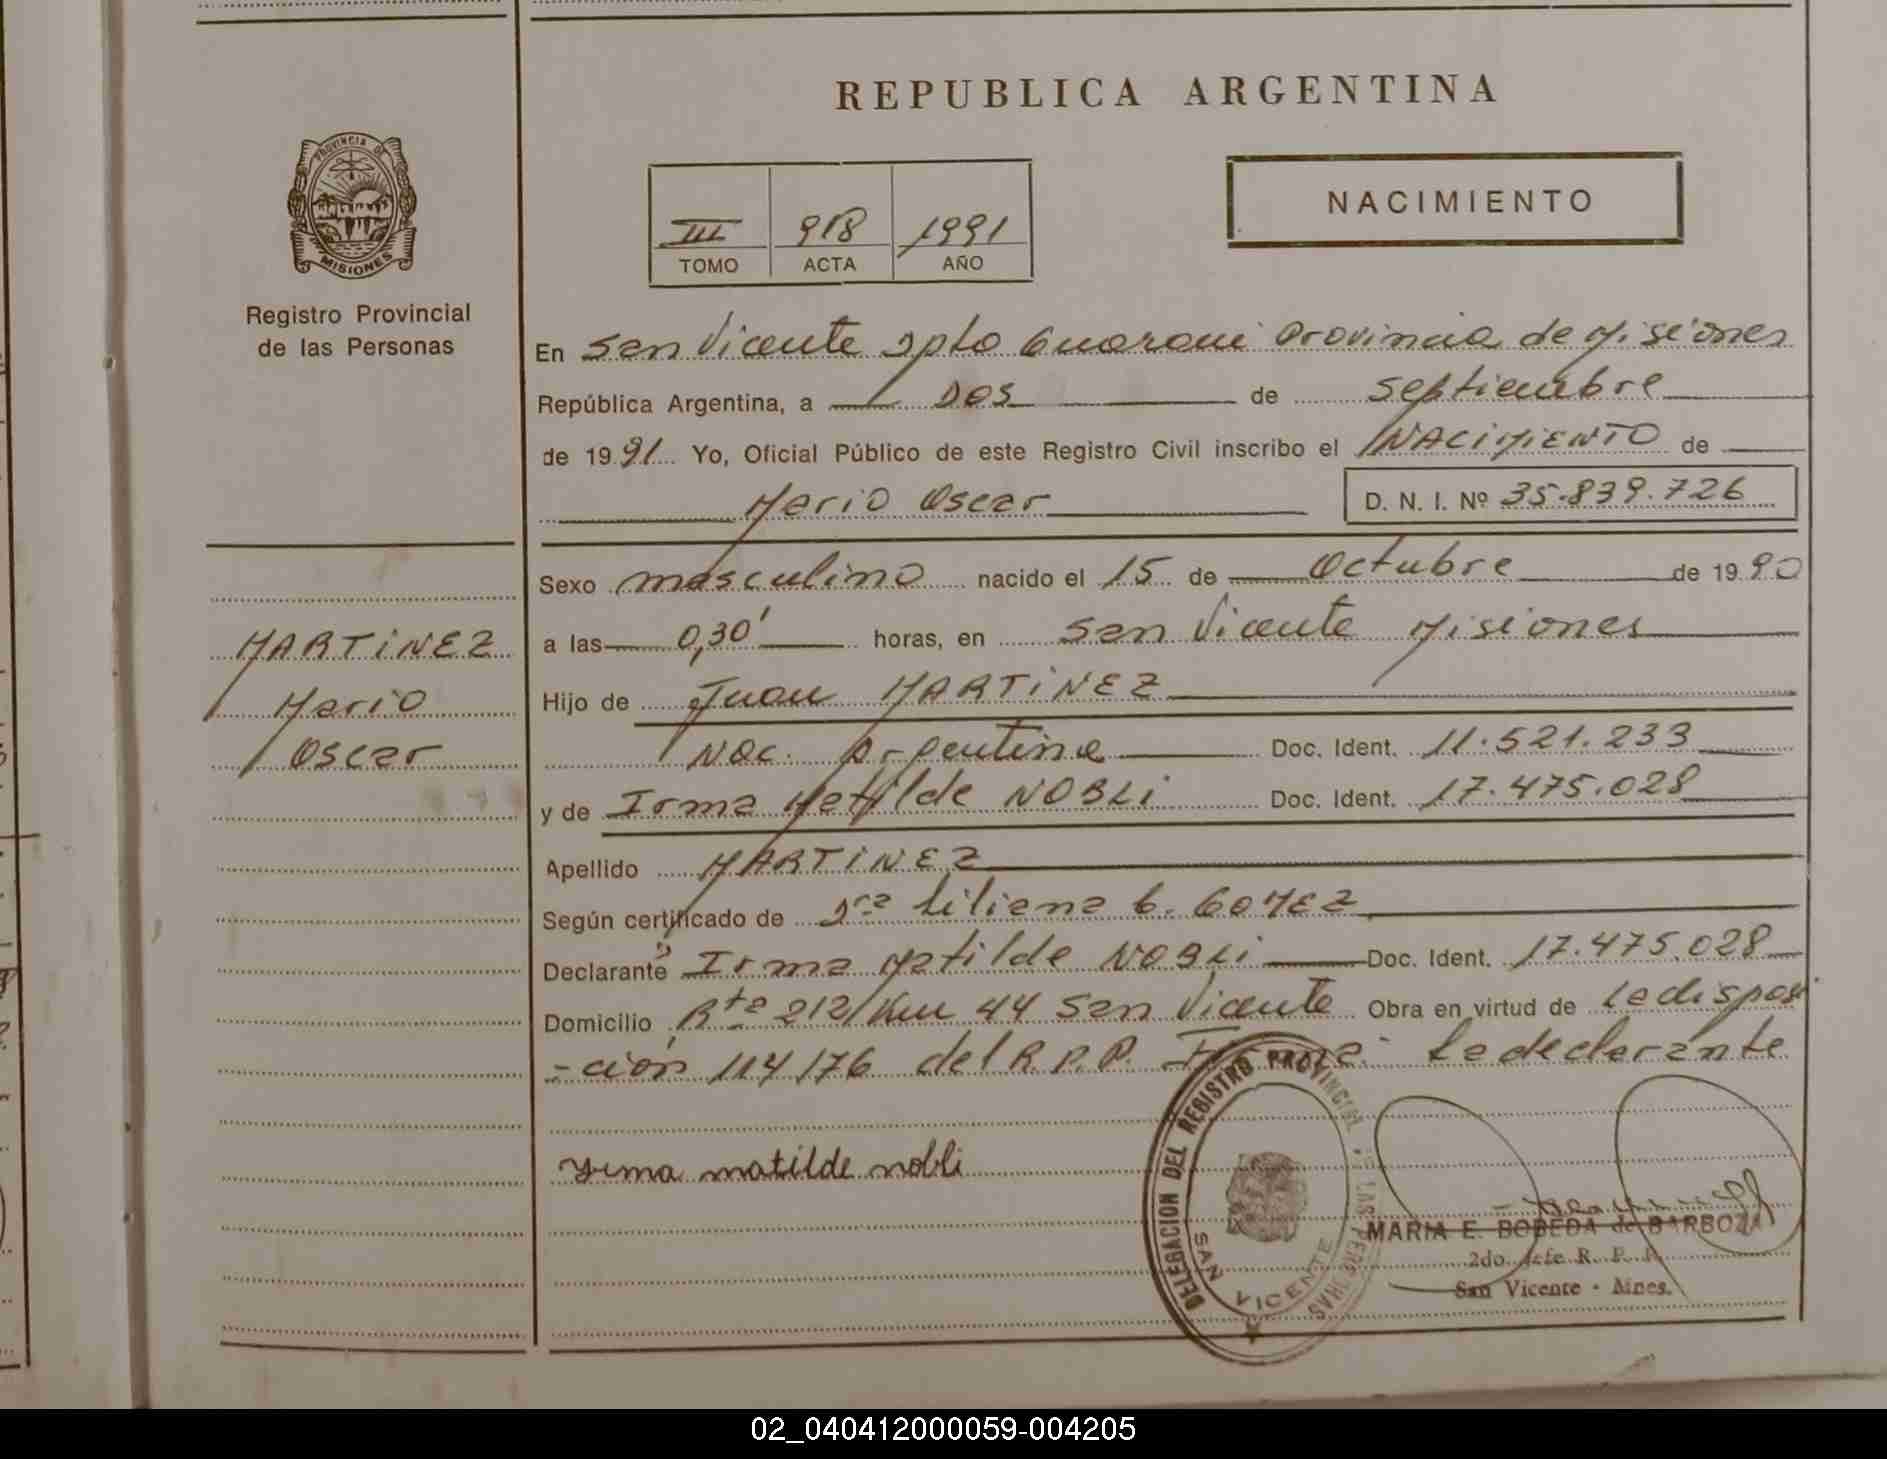 REPUBLICA ARGENTINA
PROVINCIA DE
MISIONES
Registro Provincial
de las Personas
NACIMIENTO
III 918 1991
TOMO ACTA AÑO
En San Vicente Dpto Guarani Provincia de Misiones
República Argentina, a Dos de septiembre
de 1991 Yo, Oficial Público de este Registro Civil inscribo el NACIMIENTO de
Mario Oscar D. N. I. Nº 35.839.726
Sexo masculino nacido el 15 de Octubre de 1990
MARTINEZ
Mario
Oscar
a las 0,30' horas, en San Vicente Misiones
Hijo de Juan MARTINEZ
Nac. Argentina Doc. Ident. 11.521.233
y de Irma Matilde NOBLI Doc. Ident. 17.475.028
Apellido MARTINEZ
Según certificado de Dra Liliana G. GOMEZ
Declarante Irma Matilde NOBLI Doc. Ident. 17.475.028
Domicilio Rta 212 Km 44 San Vicente Obra en virtud de La dispos
-ción 114/76 del R.P.P. Firma: La declarante
yrma matilde nobli
DELEGACION DEL REGISTRO PROVINCIAL DE LAS PERSONAS
SAN VICENTE
MARIA E. BOBEDA de BARBOZA
2do. Jefe R. P. P.
San Vicente - Mnes.
02_040412000059-004205